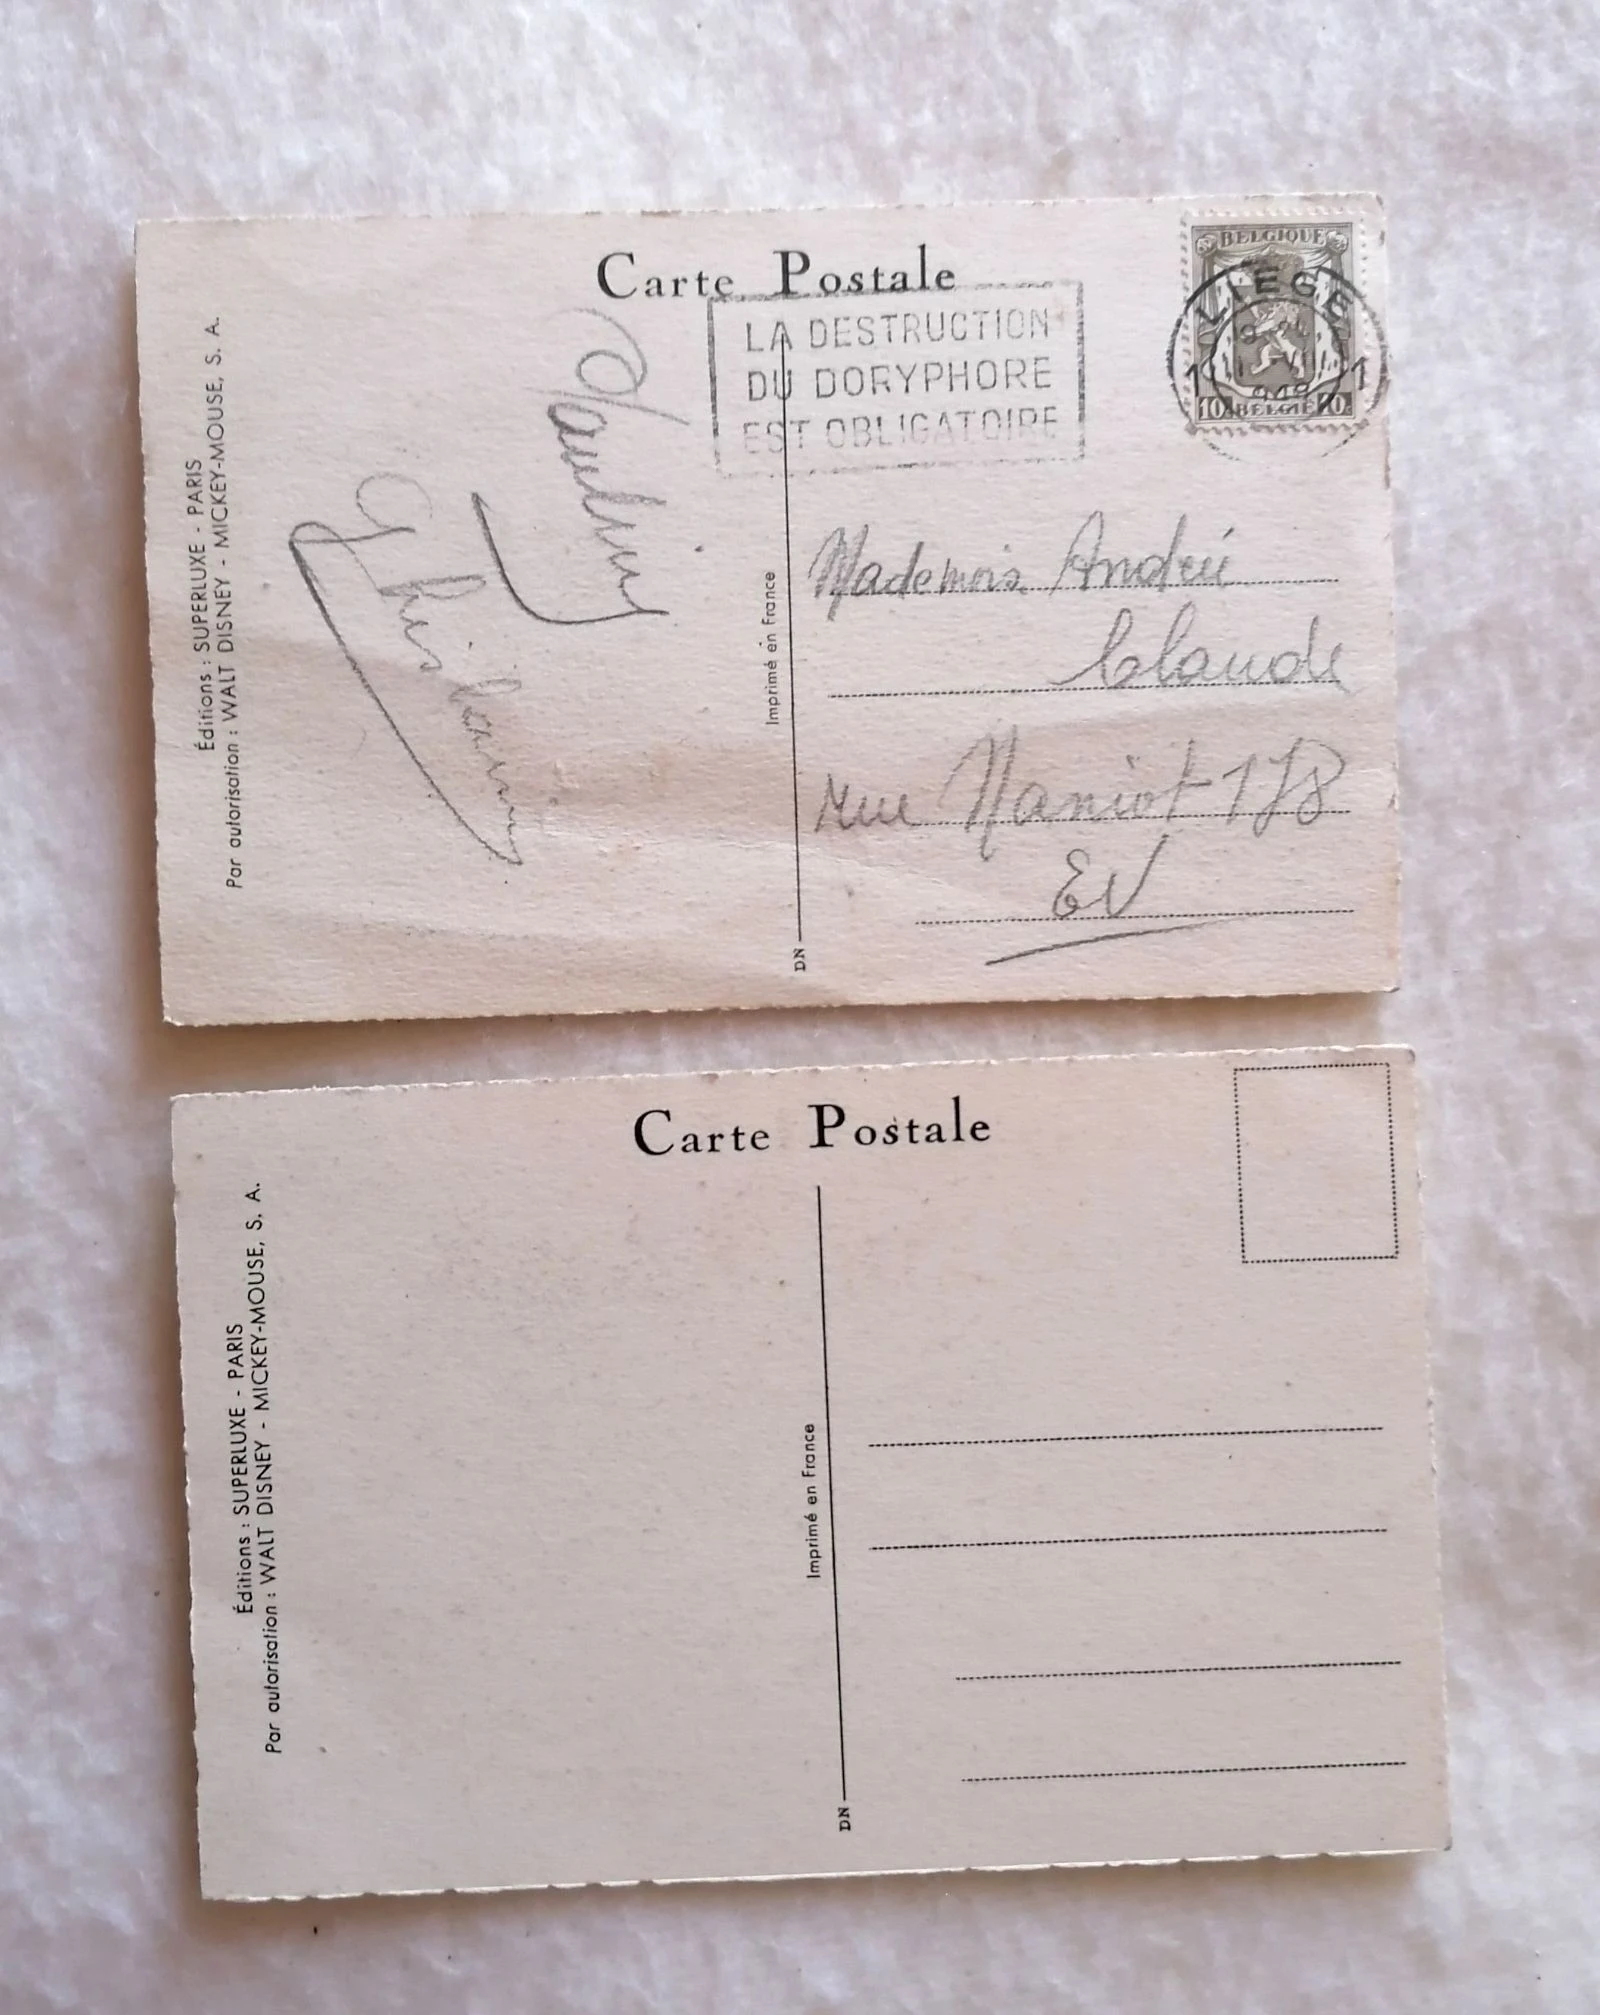 Carte Postale
BELGIQUE
LIEGE
1 1
10 BELGIË 10
LA DESTRUCTION
DU DORYPHORE
EST OBLIGATOIRE
Éditions : SUPERLUXE - PARIS
Par autorisation : WALT DISNEY - MICKEY-MOUSE, S. A.
Imprimé en France
Mademois. Andrée
Claude
rue Naniot 178
EV
DN
Carte Postale
Éditions : SUPERLUXE - PARIS
Par autorisation : WALT DISNEY - MICKEY-MOUSE, S. A.
Imprimé en France
DN